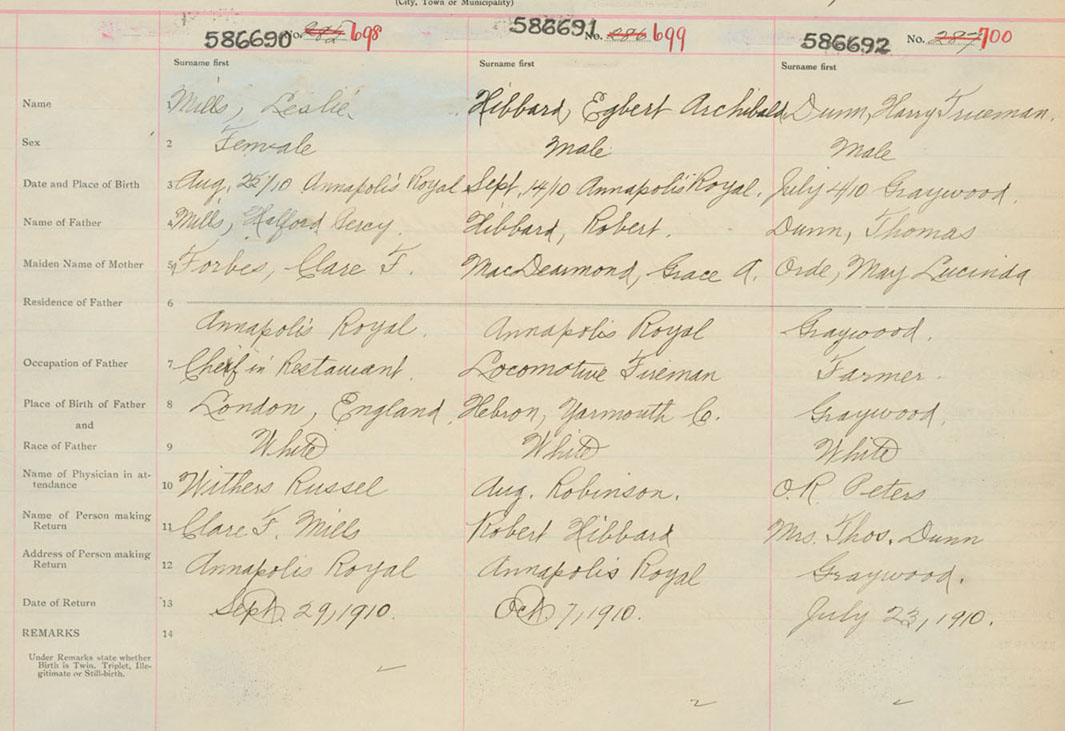 (City, Town or Municipality)
586690 No. 285 698 586691 No. 286 699 586692 No. 287 700
Surname first Surname first Surname first
Name 1 Mills, Leslie Hibbard, Egbert Archibald Dunn, Harry Trueman.
Sex 2 Female Male Male
Date and Place of Birth 3 Aug, 25/10 Annapolis Royal Sept, 14/10 Annapolis Royal. July 4/10 Graywood.
Name of Father 4 Mills, Halford Percy. Hibbard, Robert. Dunn, Thomas
Maiden Name of Mother 5 Forbes, Clare F. MacDearmond, Grace A. Orde, May Lucinda
Residence of Father 6
Annapolis Royal. Annapolis Royal Graywood.
Occupation of Father 7 Chef in Restaurant. Locomotive Fireman Farmer.
Place of Birth of Father 8 London, England. Hebron, Yarmouth C. Graywood.
and
Race of Father 9 White White White
Name of Physician in at-
tendance 10 Withers Russel Aug. Robinson. O.R Peters
Name of Person making
Return 11 Clare F. Mills Robert Hibbard Mrs. Thos. Dunn
Address of Person making
Return 12 Annapolis Royal Annapolis Royal Graywood.
Date of Return 13 Sept. 29, 1910. Oct 7, 1910. July 23, 1910.
REMARKS 14
Under Remarks state whether
Birth is Twin, Triplet, Ille-
gitimate or Still-birth.